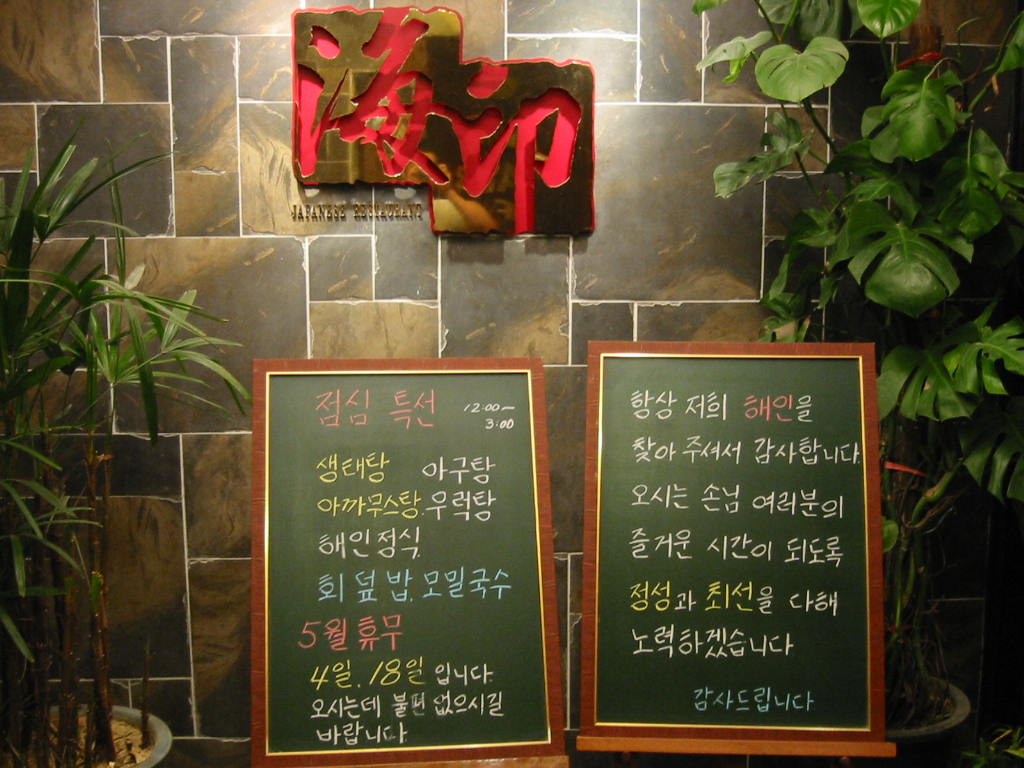 海印
JAPANESE RESTAURANT
점심 특선 12:00~
3:00
생태탕 아구탕
아까무스탕, 우럭탕
해인정식,
회덮밥, 모밀국수
5월 휴무
4일, 18일 입니다.
오시는데 불편 없으시길
바랍니다.
항상 저희 해인을
찾아 주셔서 감사합니다.
오시는 손님 여러분의
즐거운 시간이 되도록
정성과 최선을 다해
노력하겠습니다
감사드립니다